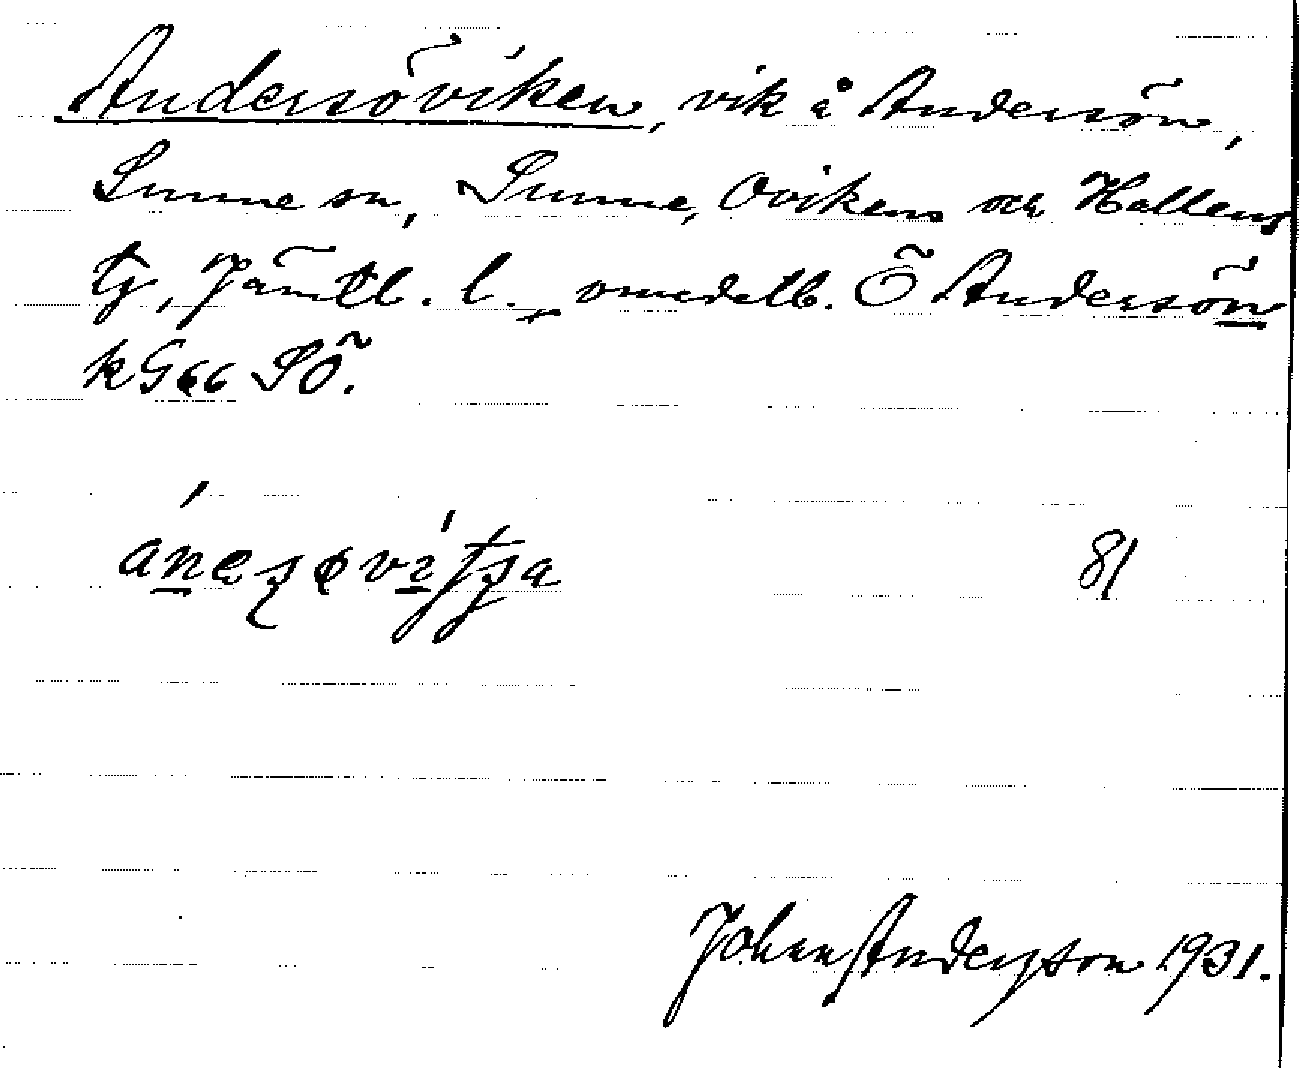 Andersöviken, vik å Andersön,
Sunne sn, Sunne, Ovikens och Hallens
tg, Jämtl. l. omedelb. Ö Andersön
k G66 SÖ.
81
Johan Anderson 1931.